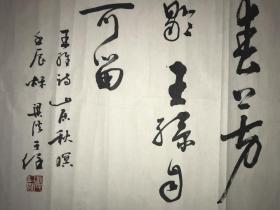 春芳
歇王孫自
可留
王維詩山居秋暝
壬辰秋